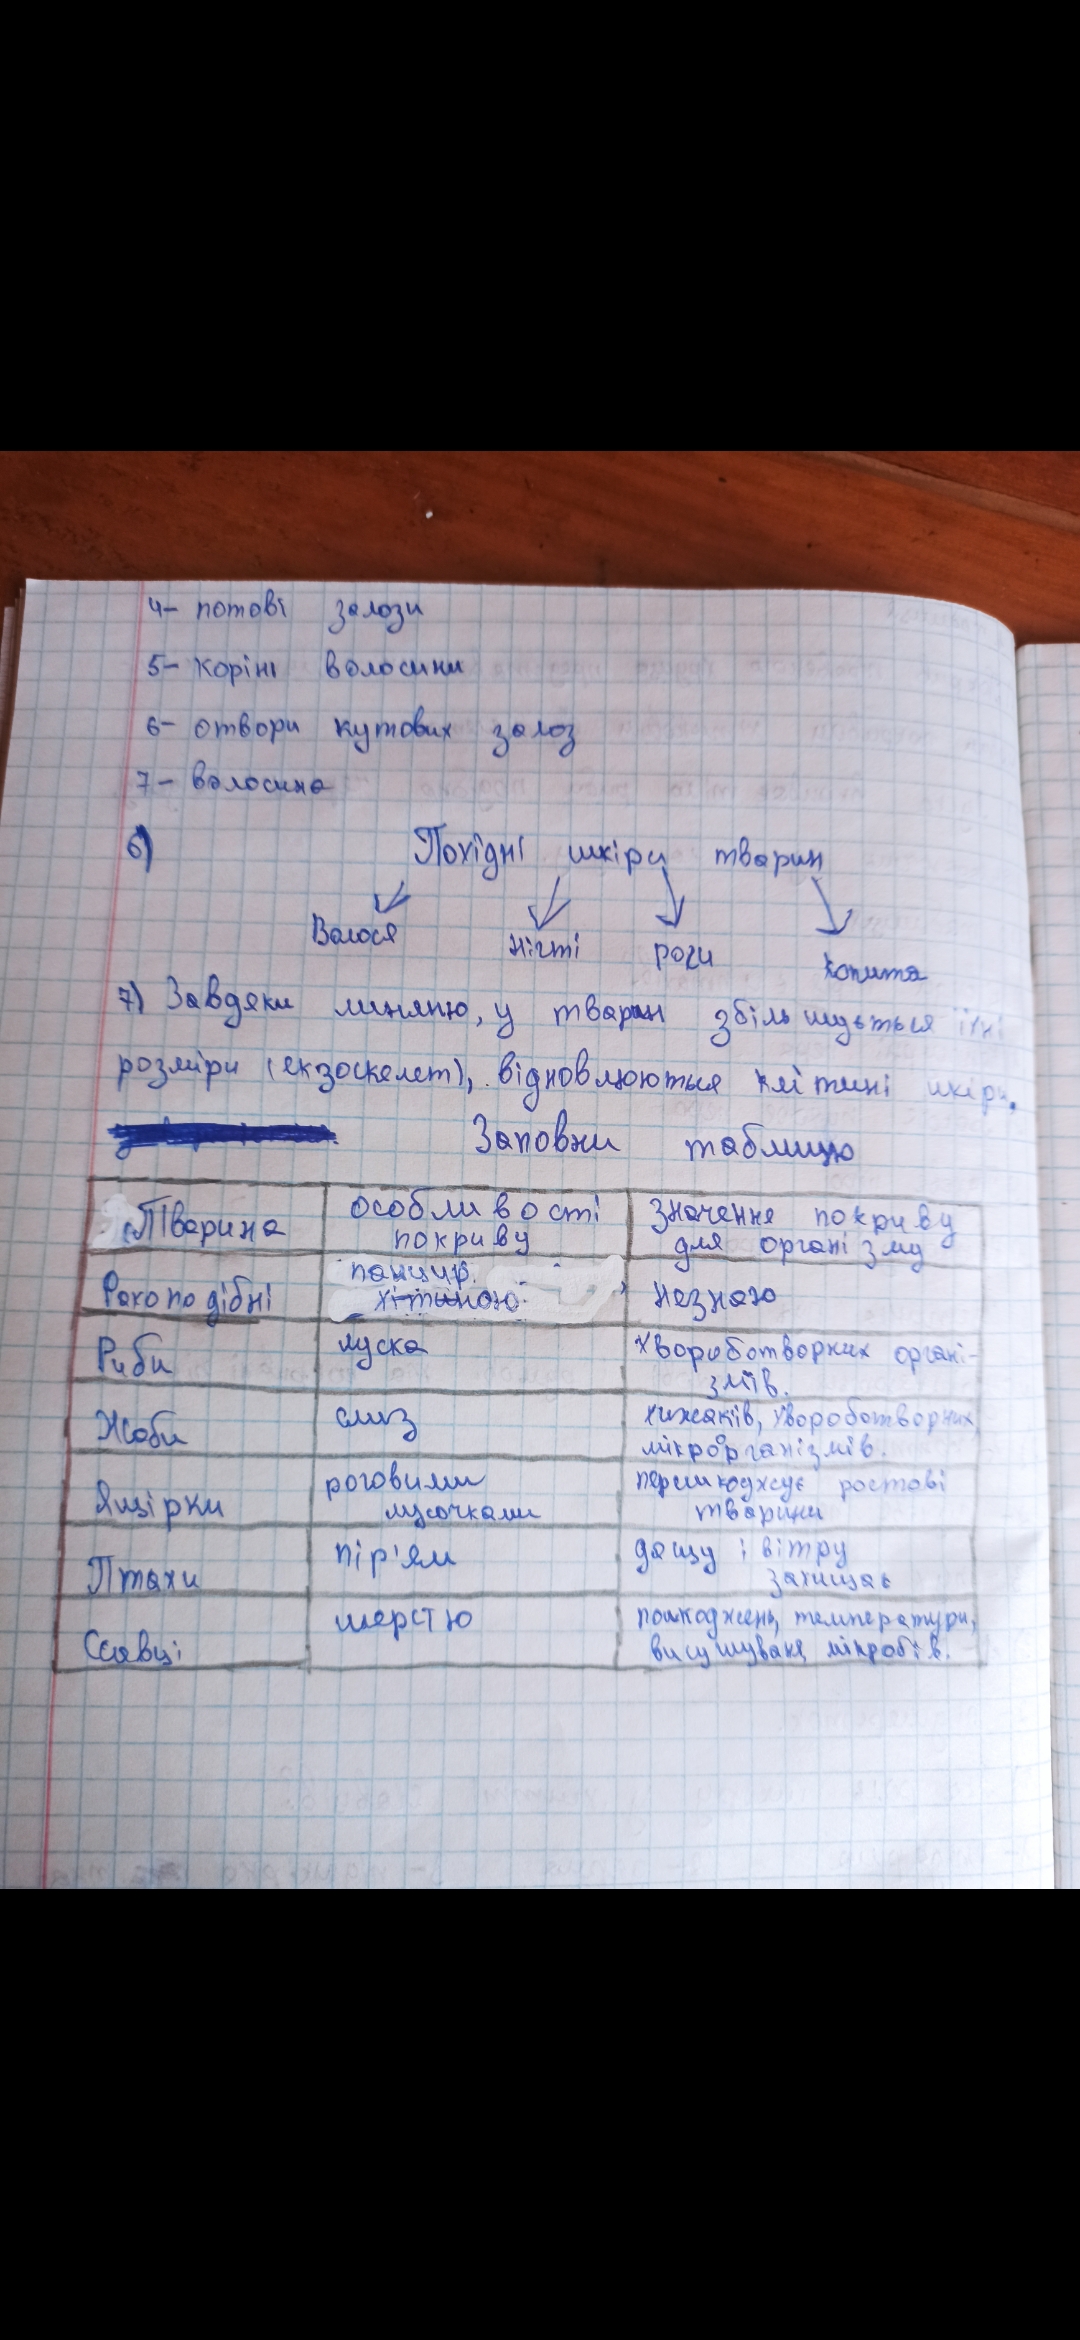 4- потові залози
5- коріні волосини
6- отвори кутових залоз
7- волосина
6) Похідні шкіри тварин
Волося нігті роги копита
7) Завдяки линяню, у тварин збільшується їхні
розміри (екзоскелет), відновлюються клітині шкіри.
Заповни таблицю
Тварина особливості покриву значення покриву для організму
Ракоподібні панцир. хітиною. незнаю
Риби луска хвороботворних органі-
змів.
Жаби слиз хижаків, хвороботворних
мікроорганізмів.
Ящірки роговими лусочками перешкоджує ростові
тварини
Птахи пір'ям дощу і вітру
захищає
Ссавці шерстю пошкоджень, температури,
висушуваня, мікробів.